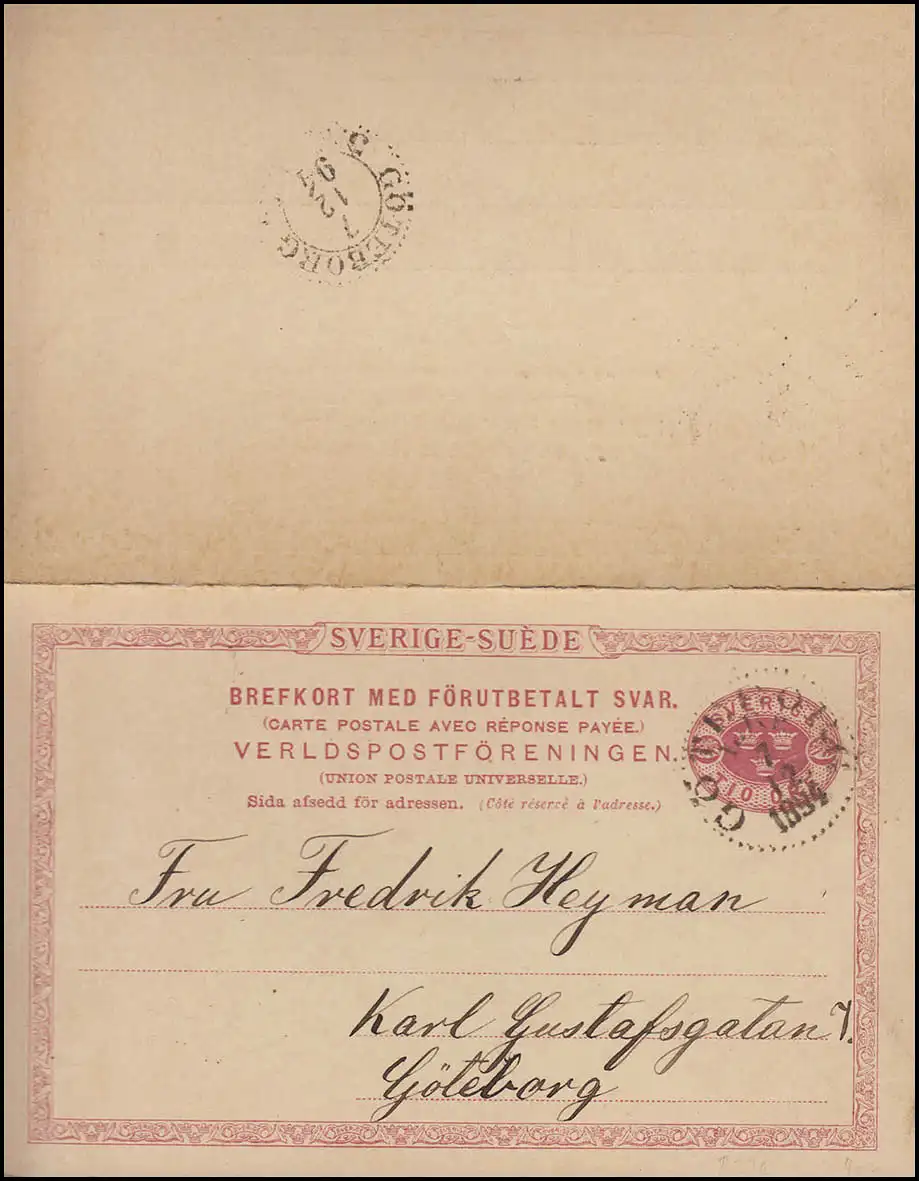 GÖTEBORG 5
1
12
94
SVERIGE-SUÈDE
BREFKORT MED FÖRUTBETALT SVAR.
(CARTE POSTALE AVEC RÉPONSE PAYÉE.)
VERLDSPOSTFÖRENINGEN.
(UNION POSTALE UNIVERSELLE.)
Sida afsedd för adressen. (Côté réservé à l'adresse.)
SVERIGE
10 ÖRE
1
12
1894
Fru Fredrik Heyman
Karl Gustafsgatan 7.
Göteborg